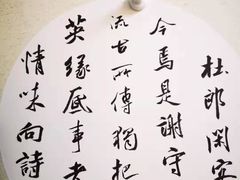 杜郎閑客
今焉是謝守
流古所傳獨把
英緣底事老
情味向詩